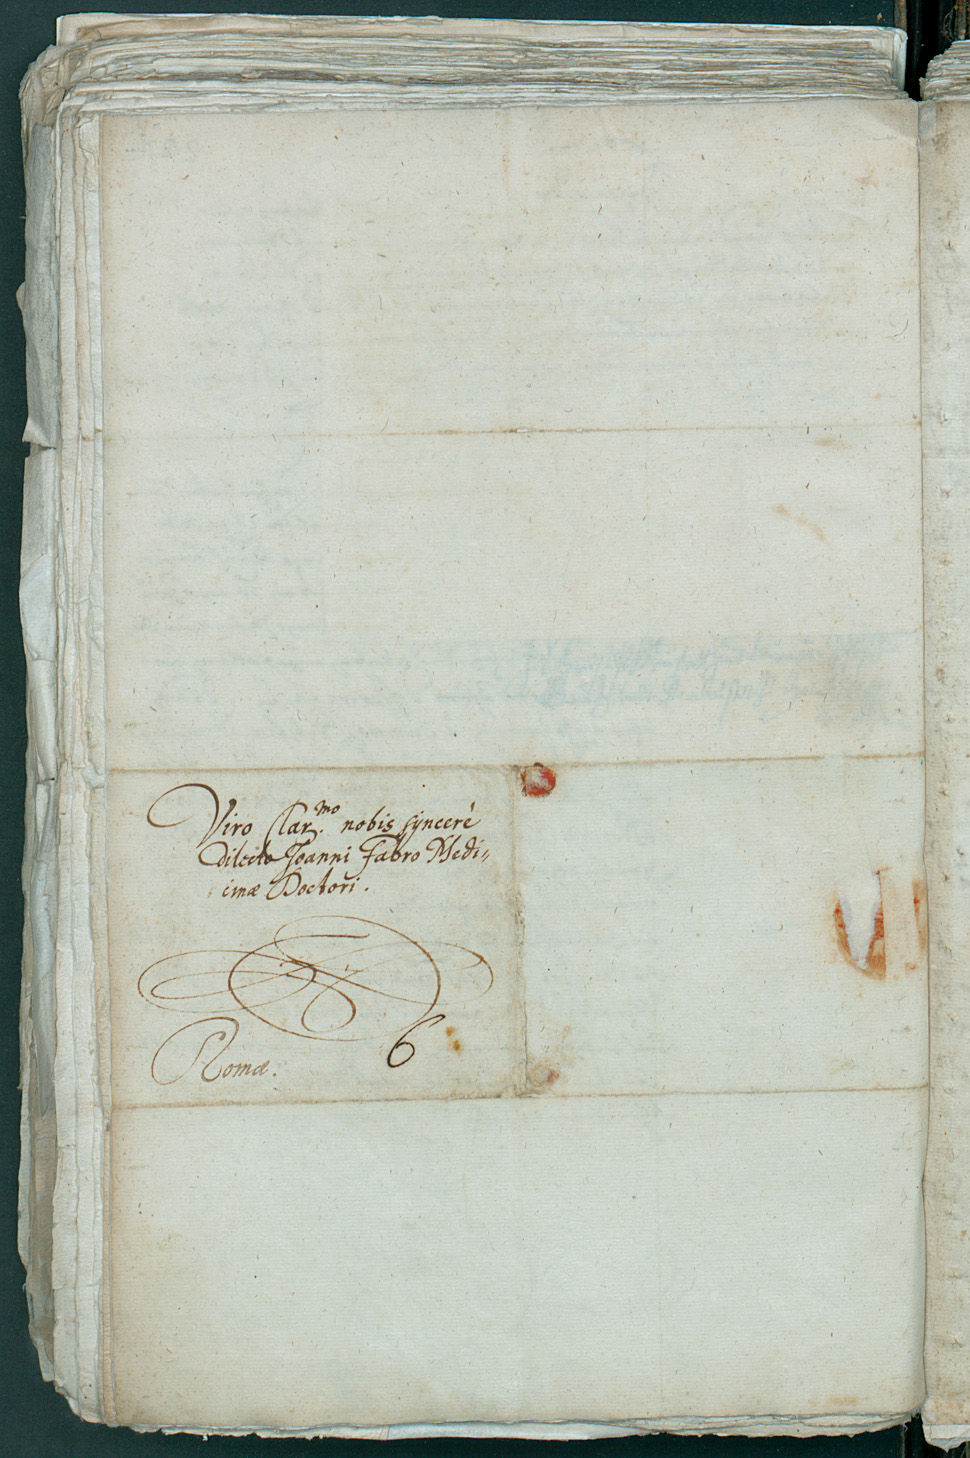 Viro Clar.mo nobis synceré
dilecto Joanni Fabro Medi„
cinæ Doctori.
6
Romæ.